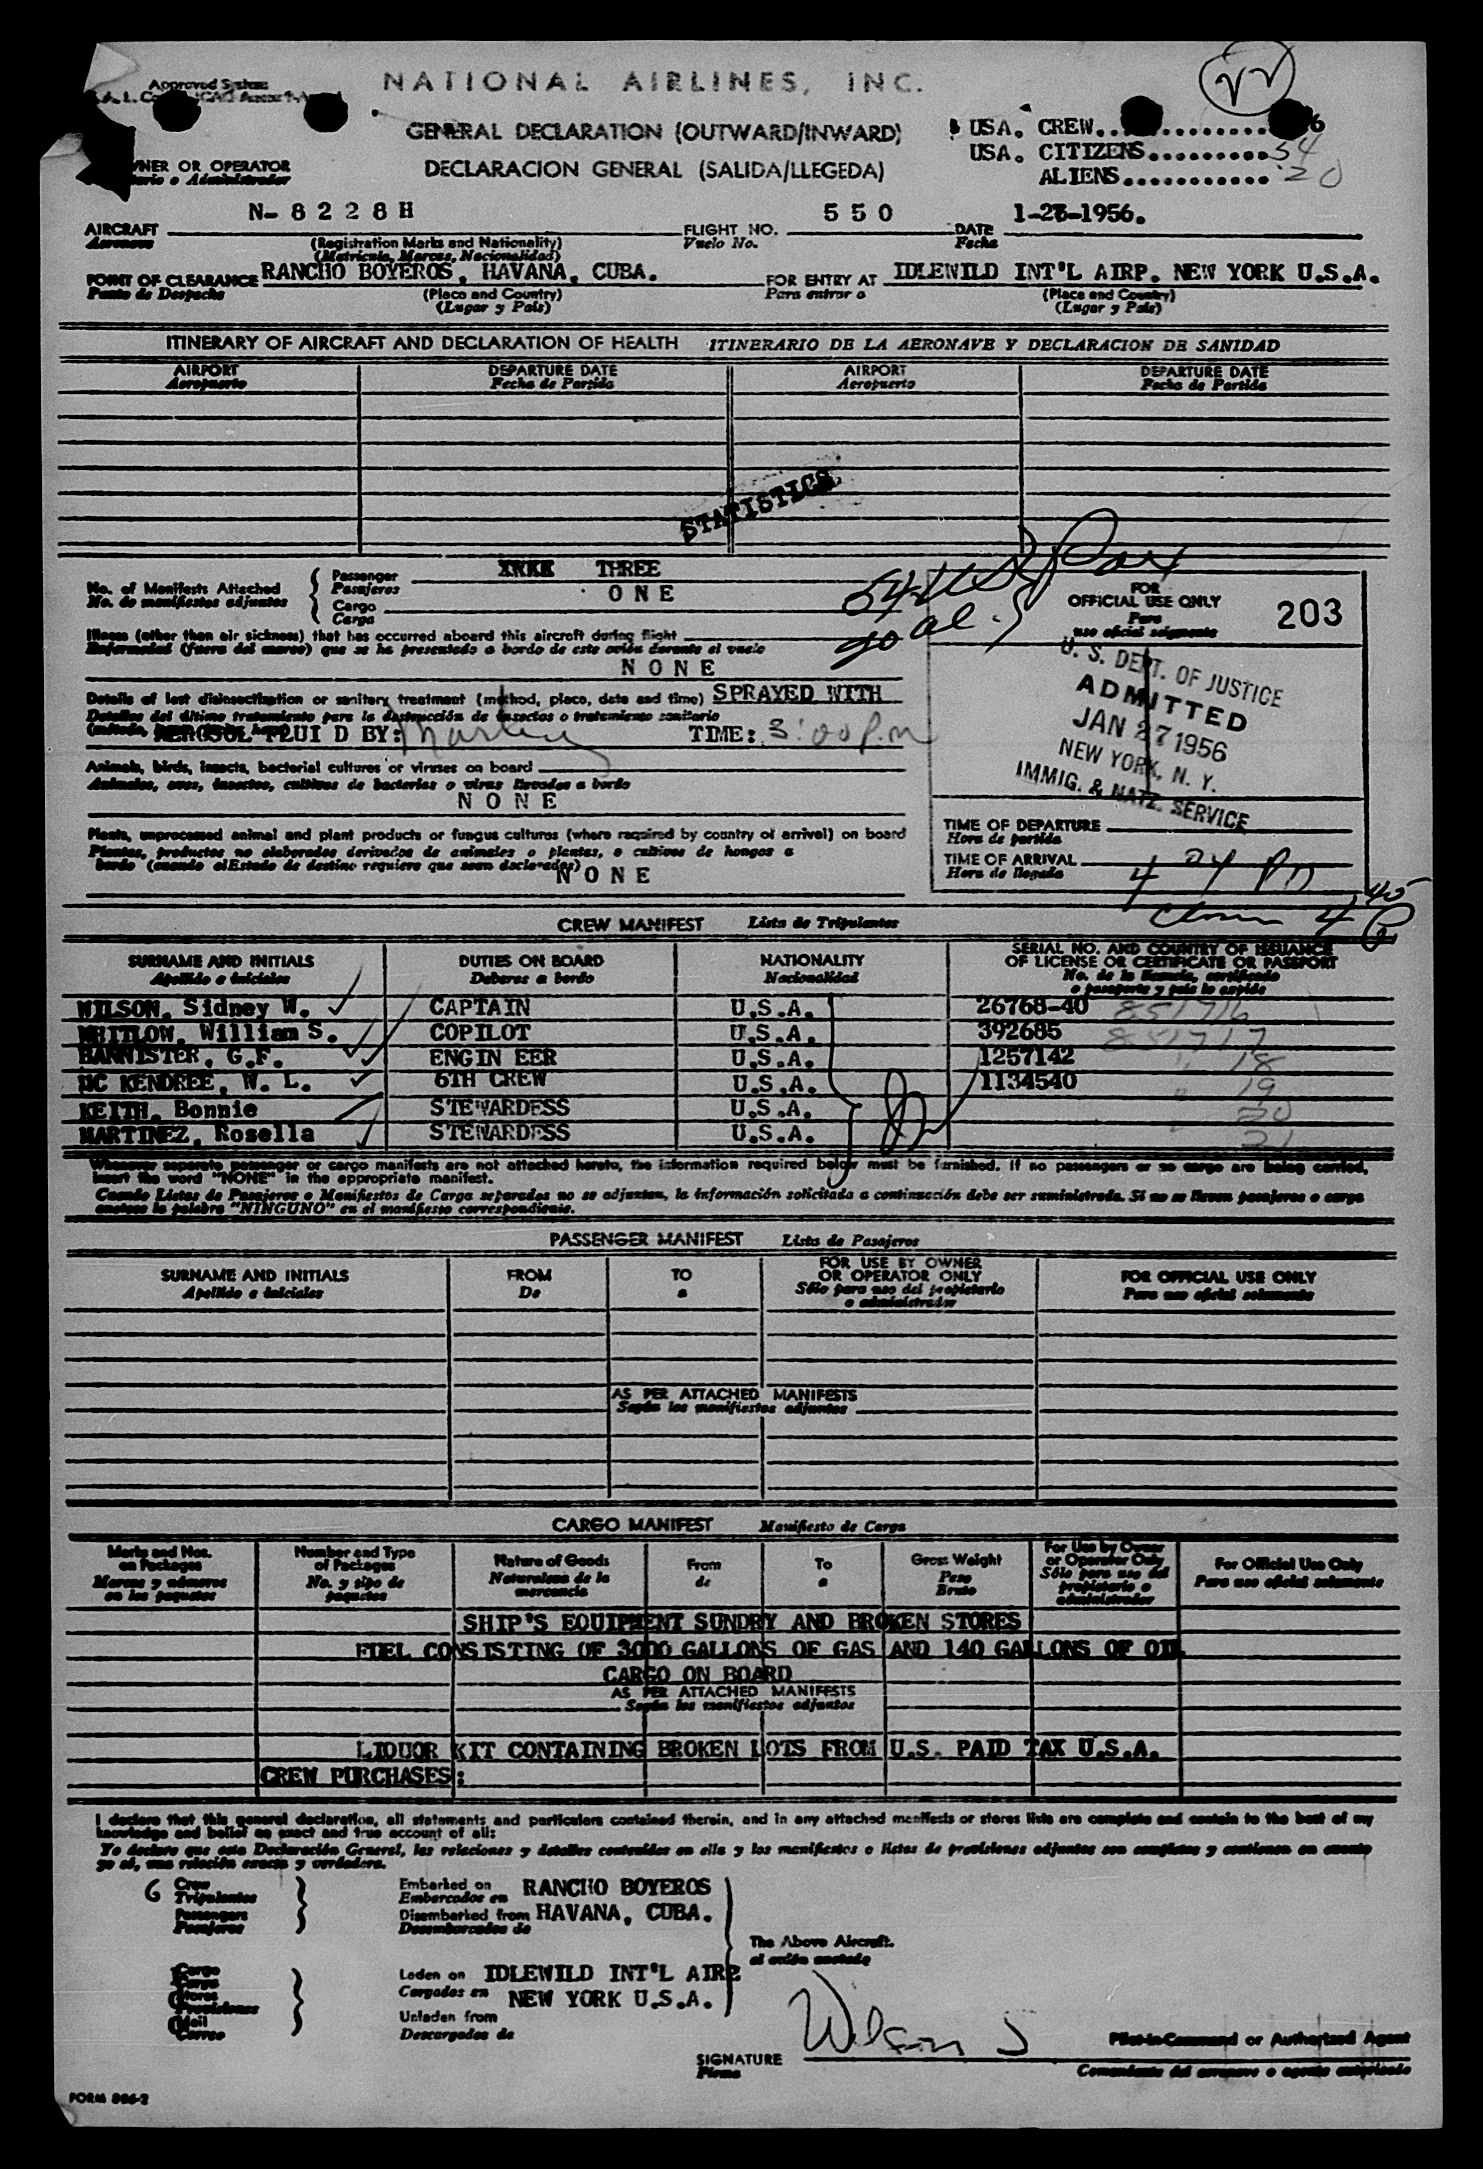 NATIONAL AIRLINES, INC.
GENERAL DECLARATION (OUTWARD/INWARD)
DECLARACION GENERAL (SALIDA/LLEGEDA)
USA. CREW............6
USA. CITIZENS..........54
ALIENS............20
OWNER OR OPERATOR
AIRCRAFT N-8228H FLIGHT NO. 550 DATE 1-27-1956.
Aeronave (Registration Marks and Nationality) Vuelo No. Fecha
(Matricula, Marcas, Nacionalidad)
POINT OF CLEARANCE RANCHO BOYEROS, HAVANA, CUBA. FOR ENTRY AT IDLEWILD INT'L AIRP. NEW YORK U.S.A.
Punto de Despacho (Place and Country) Para entrar a (Place and Country)
(Lugar y País) (Lugar y País)
ITINERARY OF AIRCRAFT AND DECLARATION OF HEALTH ITINERARIO DE LA AERONAVE Y DECLARACION DE SANIDAD
AIRPORT DEPARTURE DATE AIRPORT DEPARTURE DATE
Aeropuerto Fecha de Partida Aeropuerto Fecha de Partida
STATISTICS
No. of Manifests Attached Passenger THREE
No. de manifiestos adjuntos Pasajeros
Cargo ONE
Carga
54 US Pax
20 al.
FOR
OFFICIAL USE ONLY
Para
uso oficial solamente
203
Illness (other than air sickness) that has occurred aboard this aircraft during flight
Enfermedad (fuera del mareo) que se ha presentado a bordo de este avión durante el vuelo
NONE
Details of last disinsectization or sanitary treatment (method, place, date and time) SPRAYED WITH
Detalles del último tratamiento para la destrucción de insectos o tratamiento sanitario
AEROSOL FLUI D BY: TIME: 3:00 p.m
Animals, birds, insects, bacterial cultures or viruses on board
Animales, aves, insectos, cultivos de bacterias o virus llevados a bordo
NONE
Plants, unprocessed animal and plant products or fungus cultures (where required by country of arrival) on board
Plantas, productos no elaborados derivados de animales o plantas, o cultivos de hongos a
bordo (cuando el Estado de destino requiere que sean declarados)
NONE
U. S. DEPT. OF JUSTICE
ADMITTED
JAN 27 1956
NEW YORK, N. Y.
IMMIG. & NATZ. SERVICE
TIME OF DEPARTURE
Hora de partida
TIME OF ARRIVAL 4 04 PM
Hora de llegada
CREW MANIFEST Lista de Tripulantes
SURNAME AND INITIALS DUTIES ON BOARD NATIONALITY SERIAL NO. AND COUNTRY OF ISSUANCE
Apellido e iniciales Deberes a bordo Nacionalidad OF LICENSE OR CERTIFICATE OR PASSPORT
No. de la licencia, certificado
o pasaporte y país lo expide
WILSON, Sidney W. CAPTAIN U.S.A. 26768-40 851716
WHITLOW, William S. COPILOT U.S.A. 392685 851717
BANNISTER, G.F. ENGIN EER U.S.A. 1257142 " 18
MC KENDREE, W. L. 6TH CREW U.S.A. 1134540 " 19
KEITH, Bonnie STEWARDESS U.S.A. 20
MARTINEZ, Rosella STEWARDESS U.S.A. 21
Whenever separate passenger or cargo manifests are not attached hereto, the information required below must be furnished. If no passengers or no cargo are being carried,
insert the word "NONE" in the appropriate manifest.
Cuando Listas de Pasajeros o Manifiestos de Carga separados no se adjuntan, la información solicitada a continuación debe ser suministrada. Si no se llevan pasajeros o carga
anotese la palabra "NINGUNO" en el manifiesto correspondiente.
PASSENGER MANIFEST Lista de Pasajeros
SURNAME AND INITIALS FROM TO FOR USE BY OWNER OR OPERATOR ONLY FOR OFFICIAL USE ONLY
Apellido e iniciales De a Sólo para uso del propietario o administrador Para uso oficial solamente
AS PER ATTACHED MANIFESTS
Según los manifiestos adjuntos
CARGO MANIFEST Manifiesto de Carga
Marks and Nos. on Packages Number and Type of Packages Nature of Goods From To Gross Weight For Use by Owner or Operator Only For Official Use Only
Marcas y números en los paquetes No. y tipo de paquetes Naturaleza de la mercancía de a Peso Bruto Sólo para uso del propietario o administrador Para uso oficial solamente
SHIP'S EQUIPMENT SUNDRY AND BROKEN STORES
FUEL CONSISTING OF 3000 GALLONS OF GAS AND 140 GALLONS OF OIL
CARGO ON BOARD
AS PER ATTACHED MANIFESTS
Según los manifiestos adjuntos
LIQUOR KIT CONTAINING BROKEN LOTS FROM U.S. PAID TAX U.S.A.
CREW PURCHASES:
I declare that this general declaration, all statements and particulars contained therein, and in any attached manifests or stores lists are complete and contain to the best of my
knowledge and belief an exact and true account of all:
Yo declaro que esta Declaración General, las relaciones y detalles contenidos en ella y los manifiestos o listas de provisiones adjuntos son completos y contienen en cuanto
yo sé, una relación exacta y verdadera.
6 Crew Embarked on RANCHO BOYEROS
Tripulantes Embarcados en
Passengers Disembarked from HAVANA, CUBA.
Pasajeros Desembarcados de
The Above Aircraft.
el avión anotado
Cargo Laden on IDLEWILD INT'L AIRP
Carga Cargados en NEW YORK U.S.A.
Stores
Provisiones Unladen from
Mail Descargados de
Correo
Wilson S
Pilot-in-Command or Authorized Agent
SIGNATURE
Firma Comandante del aeronave o agente autorizado
FORM 806-2